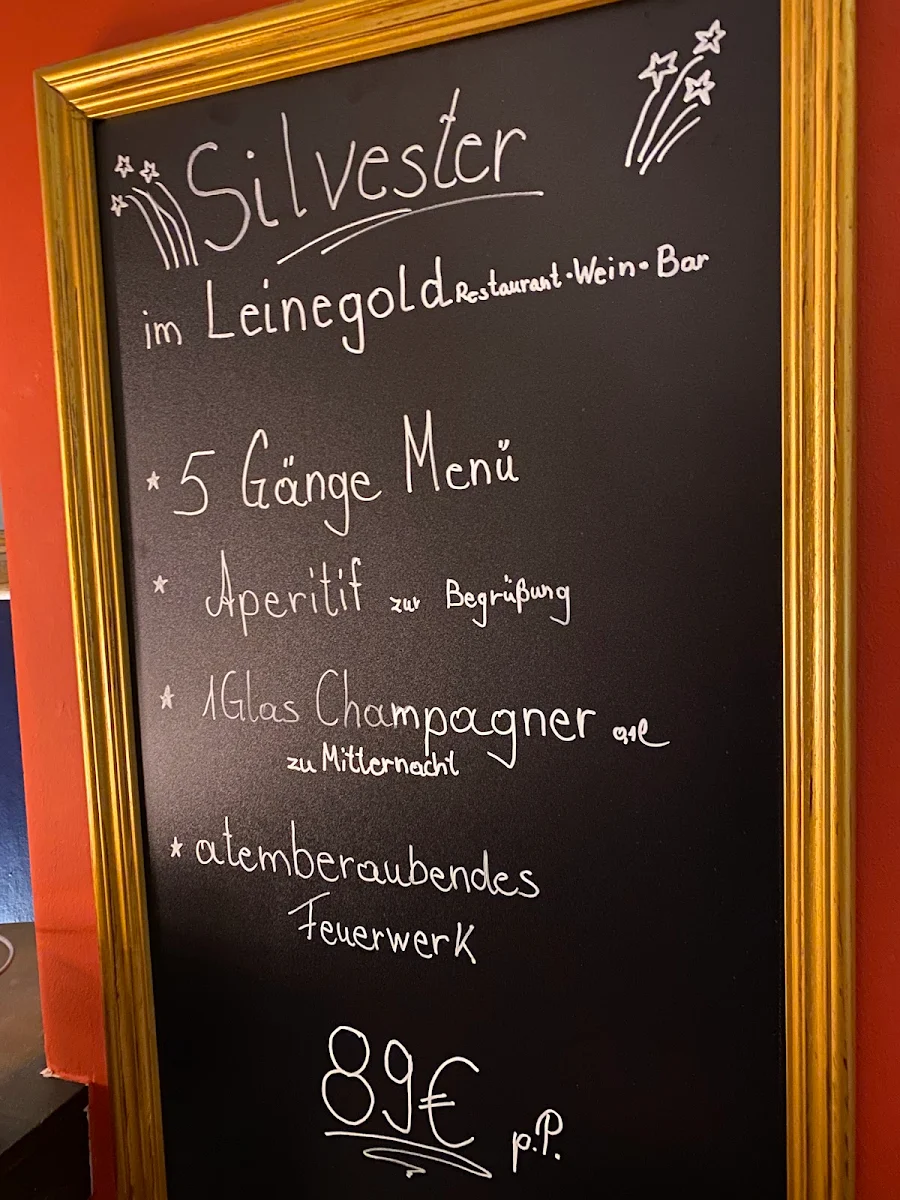 Silvester
im Leinegold Restaurant·Wein·Bar
5 Gänge Menü
Aperitif zur Begrüßung
1 Glas Champagner 0,1l
zu Mitternacht
atemberaubendes
Feuerwerk
89€ p.P.